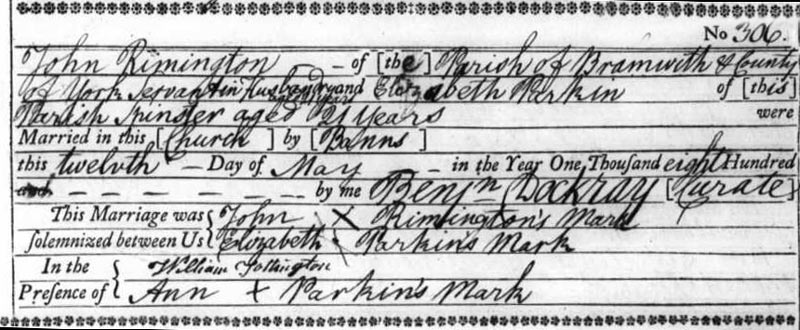 No 306.
John Rimington – of [the] Parish of Bramwith & County
of York Servant in Husbandry and Elizabeth Parkin of [this]
Parish Spinster aged 21 Years were
Married in this [Church] by [Banns]
this twelvth – Day of May – in the Year One Thousand eight Hundred
and – – – – – – – by me Benjn Dockray [Curate]
This Marriage was { John X Rimington's Mark
solemnized between Us { Elizabeth X Parkin's Mark
In the { William Tottington
Presence of { Ann + Parkin's Mark